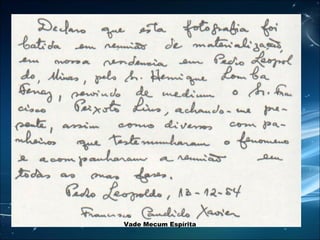 Declaro que esta fotografia foi
batida em reunião de materialização,
em nossa residencia em Pedro Leopol
do, Minas, pelo Sr. Henrique Lomba
Ferraz, servindo de medium o Sr. Fran
cisco Peixoto Lins, achando-me pre-
sente, assim como diversos compa-
nheiros que testemunharam o fenomeno
e acompanharam a reunião em
todas as suas fases.
Pedro Leopoldo, 13-12-54
Francisco Candido Xavier
Vade Mecum Espírita